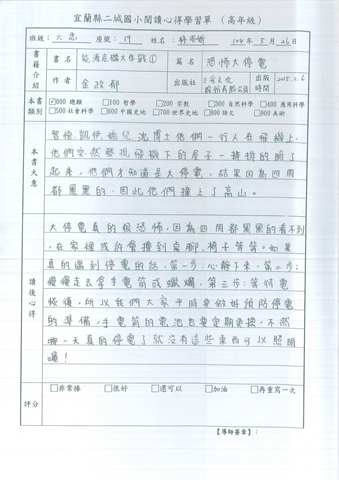 宜蘭縣二城國小閱讀心得學習單（高年級）
班級：六忠 座號：19 姓名： 104年5月26日
書籍介紹 書名 能源危機大作戰① 篇名 恐怖大停電
作者 金政郁 出版社 三采文化股份有限公司 出版時間 2015.2.6
本書類別 ☑000 總類 □100 哲學 □200 宗教 □300 自然科學 □400 應用科學
□500 社會科學 □600 中國史地 □700 世界史地 □800 語文 □900 美術
本書大意
智俊、凱伊、 沈博士他們一行人在飛機上,
他們突然發現飛機下的屋子一棟棟的暗了
起來,他們才知道是大停電,結果因為四周
都黑黑的,因此他們撞上了高山。
讀後心得
大停電真的很恐怖,因為四周都黑黑的看不到
,在家裡或許會撞到桌腳、椅子等等。如果
真的遇到停電的話,第一步:心靜下來,第二步:
慢慢走去拿手電筒或蠟燭,第三步:等待電
恢復,所以我們大家平時要做好預防停電
的準備,手電筒的電池也要定期更換,不然
哪一天真的停電了就沒有這些東西可以照明
囉!
評分 □非常棒 □很好 □還可以 □加油 □再重寫一次
【導師簽章】：